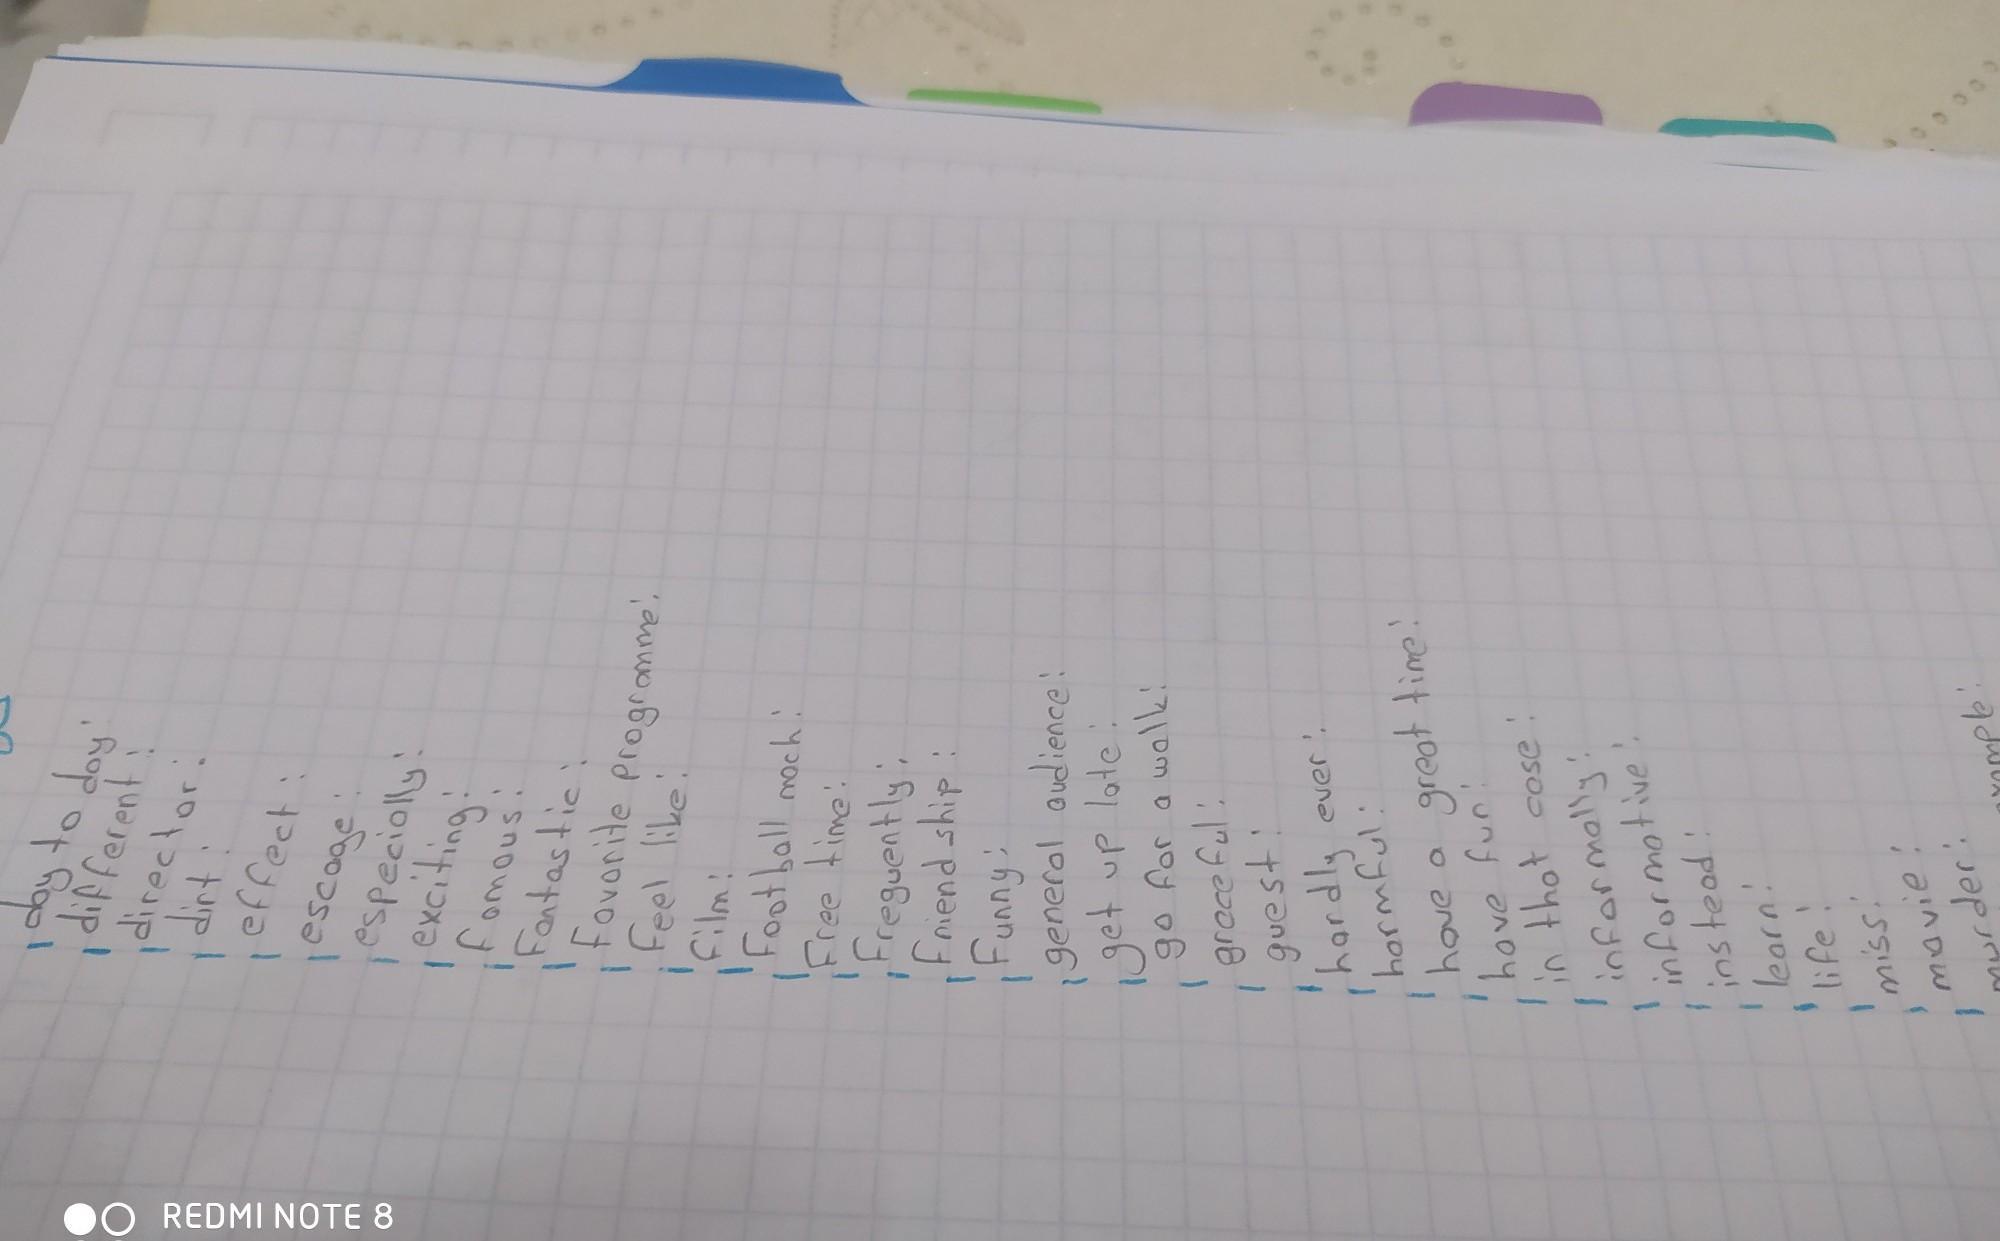 day to day:
different:
director:
dirt:
effect:
escage:
especially:
exciting:
famous:
Fantastic:
Favorite programme:
Feel like:
Film:
Football mach:
Free time:
Freguently:
Friendship:
Funny:
general audience:
get up late:
go for a walk:
graceful:
guest:
hardly ever:
harmful:
have a great time:
have fun:
in that case:
informally:
informative:
instead:
learn:
life:
miss:
movie:
murder:
REDMI NOTE 8